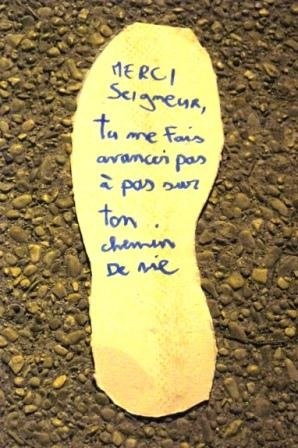 MERCI
Seigneur,
tu me fais
avancer pas
à pas sur
ton
chemin
De vie